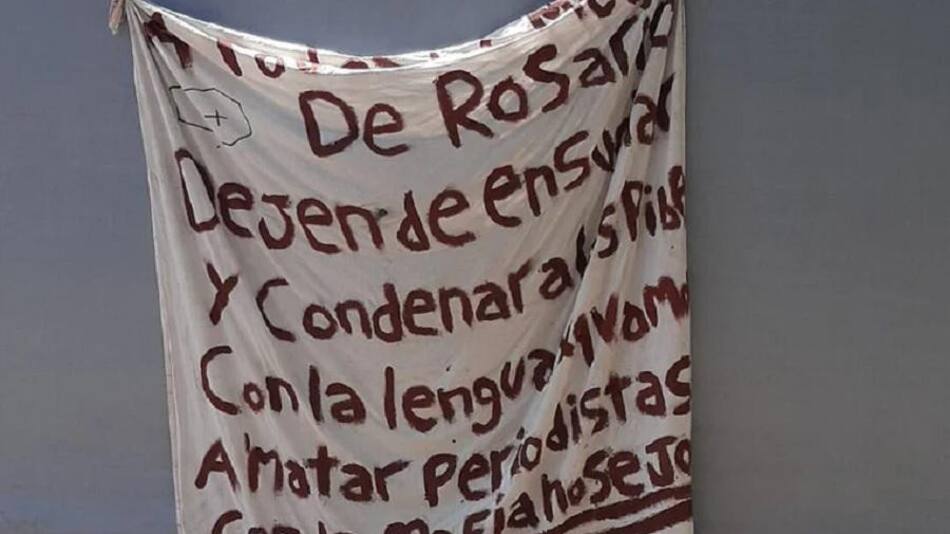 De Rosar
Dejen de ensuciar
y Condenar a los Pibe
Con la lengua x q vamo
A matar periodistas
Con la Mafia no se jo